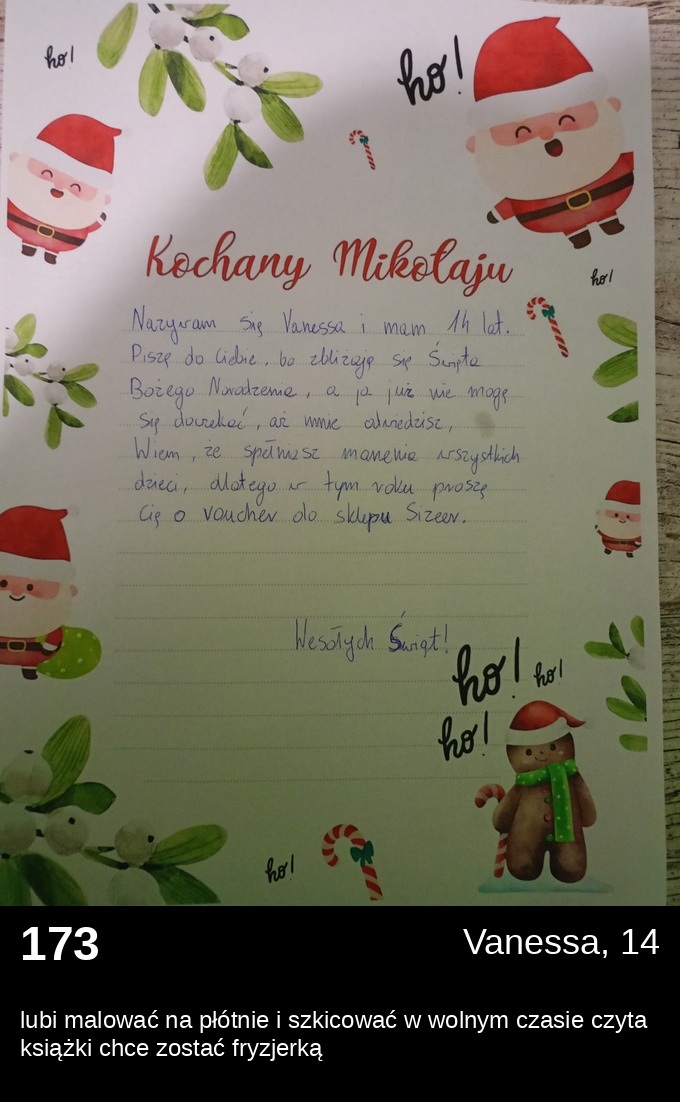 ho!
ho!
Kochany Mikołaju
ho!
Nazywam się Vanessa i mam 14 lat.
Piszę do Ciebie, bo zbliżają się Święta
Bożego Narodzenia, a ja już nie mogę
się doczekać, aż mnie odwiedzisz,
Wiem, że spełniasz marzenia wszystkich
dzieci, dlatego w tym roku proszę
Cię o voucher do sklepu Sizeer.
Wesołych Świąt!
ho!
ho!
ho!
ho!
173
Vanessa, 14
lubi malować na płótnie i szkicować w wolnym czasie czyta
książki chce zostać fryzjerką